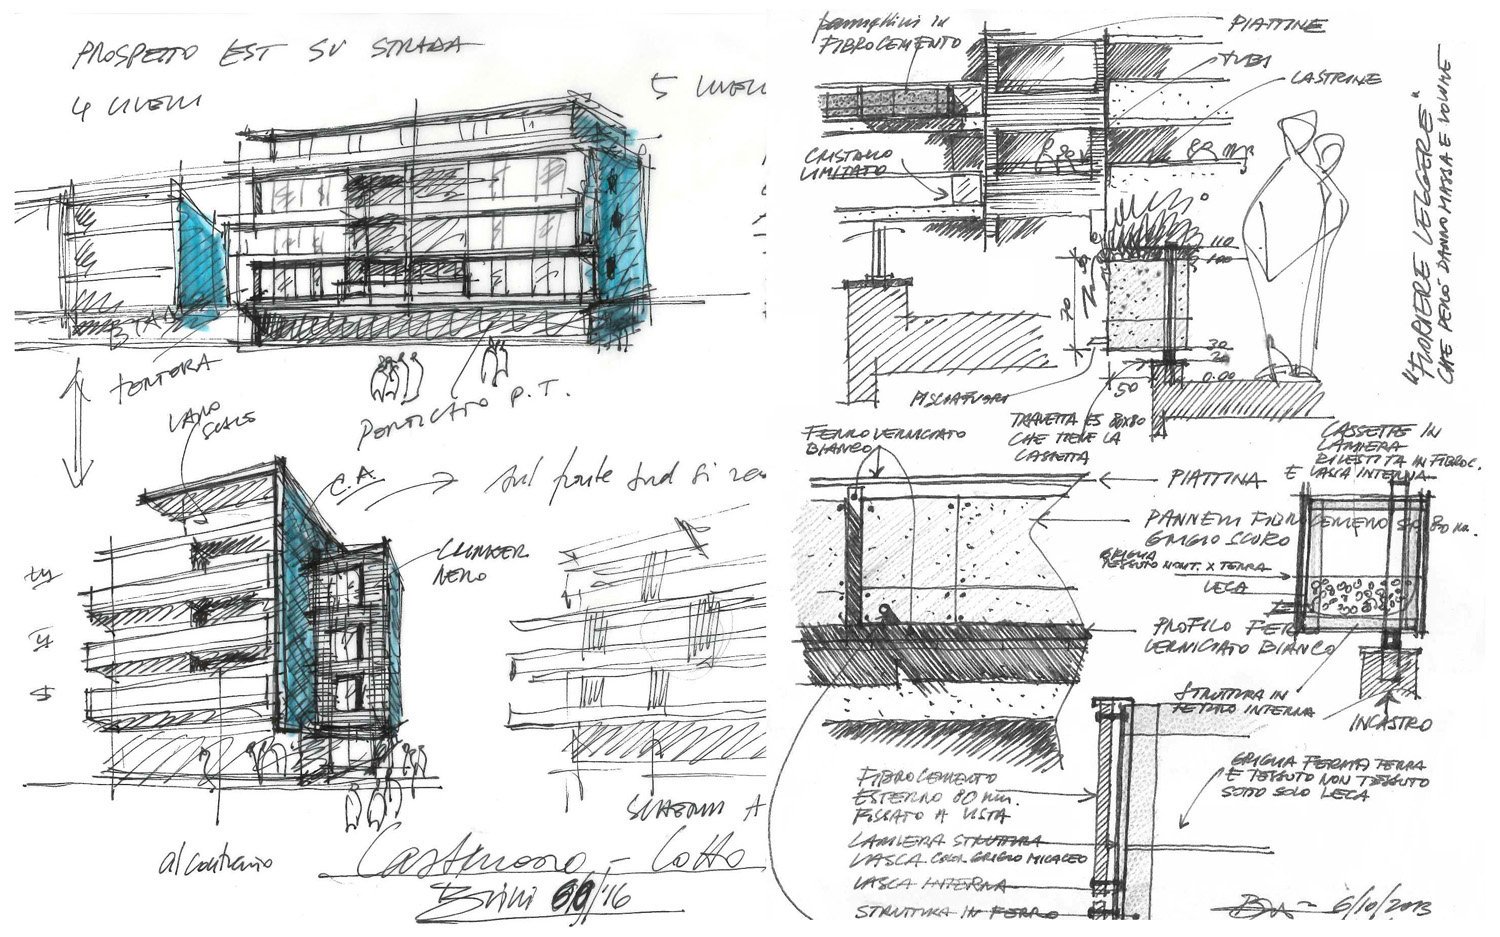 PROSPETTO EST SU STRADA
4 LIVELLI
5 LIVELLI
TORTORA
VANO
SCALE
PORTICATO P.T.
C.A.
sul fronte sud si
CLINKER
NERO
SCHERMI A
al contrario
Cotto
pannellini in
FIBROCEMENTO
PIATTINE
TUBI
LASTRINE
CRISTALLO
LIMITATO
"FIORIERE LEGGERE"
CHE PERÒ DANNO MASSA E VOLUME
110
100
70
30
20
0.00
50
PISCIATUORI
CHE TIENE LA
CASSETTA
FERRO VERNICIATO
BIANCO
CASSETTE IN
LAMIERA
RIVESTITA IN FIBROC.
E VASCA INTERNA
PIATTINA
PANNELLI FIBROCEMENTO
GRIGIO SCURO
GRIGLIA
TESSUTO NON T. X TERRA
LECA
PROFILO FERRO
VERNICIATO BIANCO
STRUTTURA IN
FERRO INTERNA
INCASTRO
GRIGLIA FERMA TERRA
E TESSUTO NON TESSUTO
SOTTO SOLO LECA
FIBROCEMENTO
ESTERNO 80 mm.
FISSATO A VISTA
LAMIERA STRUTTURA
VASCA COLOR GRIGIO MICACEO
VASCA INTERNA
STRUTTURA IN FERRO
6/10/2013